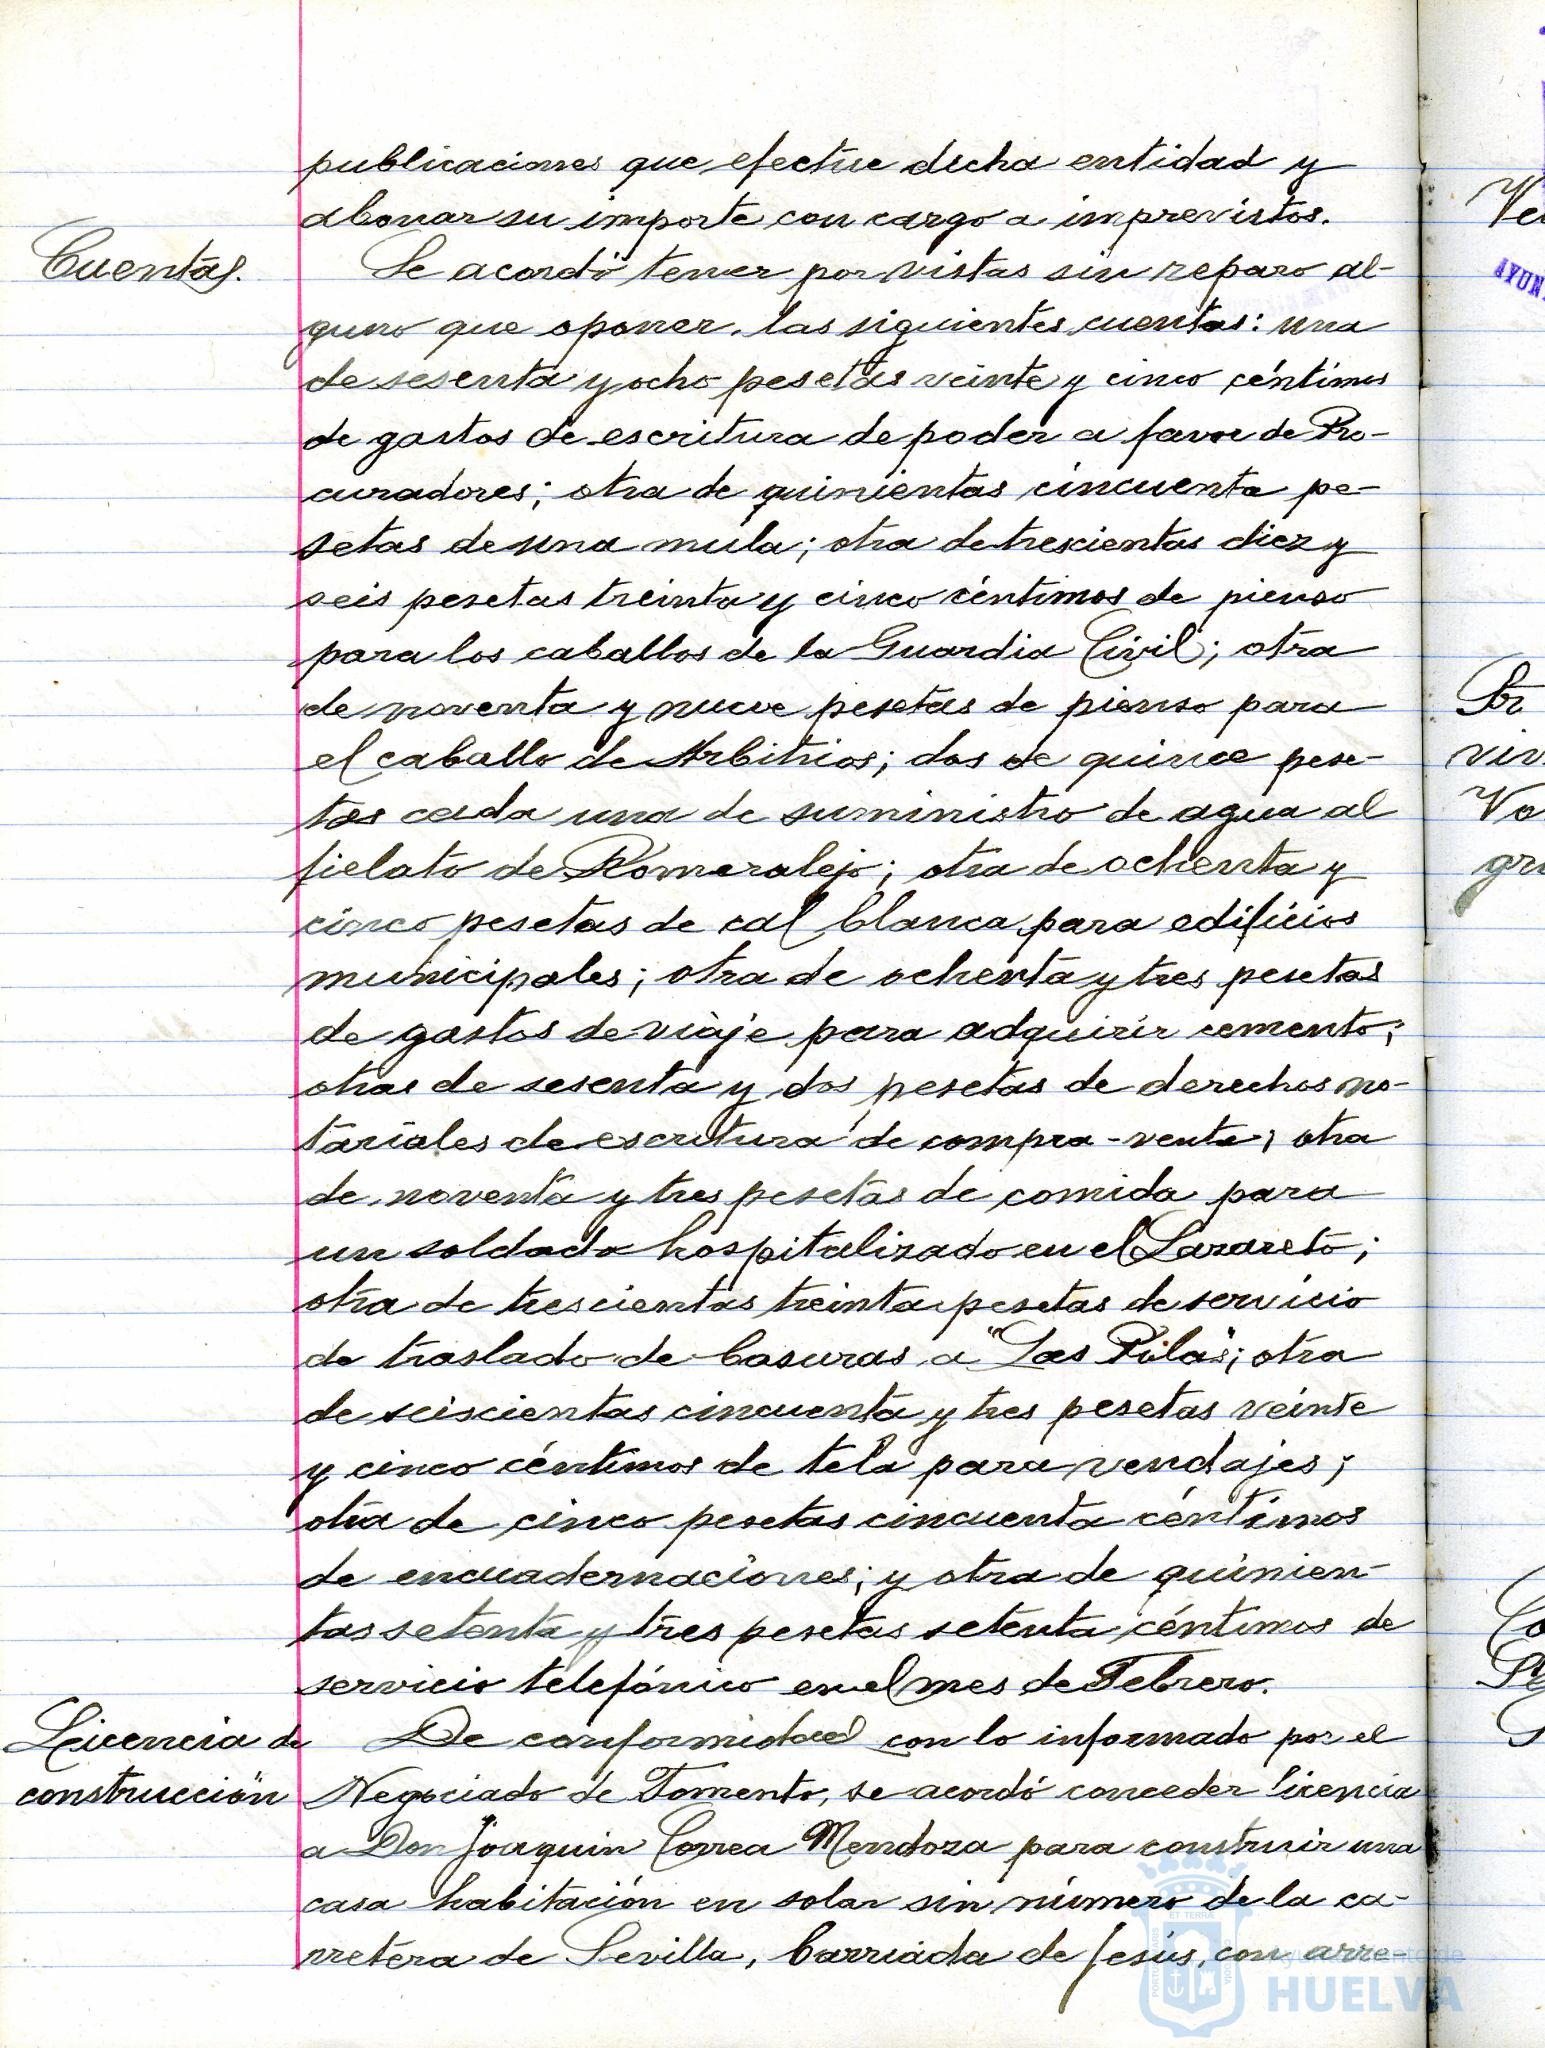 publicaciones que efectúe dicha entidad y
abonar su importe con cargo a imprevistos.
Cuentas.
Se acordó tener por vistas sin reparo al-
guno que oponer las siguientes cuentas: una
de sesenta y ocho pesetas veinte y cinco céntimos
de gastos de escritura de poder a favor de Pro-
curadores; otra de quinientas cincuenta pe-
setas de una mula; otra de trescientas diez y
seis pesetas treinta y cinco céntimos de pienso
para los caballos de la Guardia Civil; otra
de noventa y nueve pesetas de pienso para
el caballo de Arbitrios; dos de quince pese-
tas cada una de suministro de agua al
fielato de Romeralejo; otra de ochenta y
cinco pesetas de cal blanca para edificios
municipales; otra de ochenta y tres pesetas
de gastos de viaje para adquirir cemento;
otras de sesenta y dos pesetas de derechos no-
tariales de escritura de compra-venta; otra
de noventa y tres pesetas de comida para
un soldado hospitalizado en el Lazareto;
otra de trescientas treinta pesetas de servicio
de traslado de basuras a "Las Pilas"; otra
de seiscientas cincuenta y tres pesetas veinte
y cinco céntimos de tela para vendajes;
otra de cinco pesetas cincuenta céntimos
de encuadernaciones; y otra de quinien-
tas setenta y tres pesetas setenta céntimos de
servicio telefónico en el mes de Febrero.
Licencia de
construcción
De conformidad con lo informado por el
Negociado de Fomento, se acordó conceder licencia
a Don Joaquin Correa Mendoza para construir una
casa habitación en solar sin número de la ca-
rretera de Sevilla, barriada de Jesús, con arre-
Ayuntamiento de
HUELVA